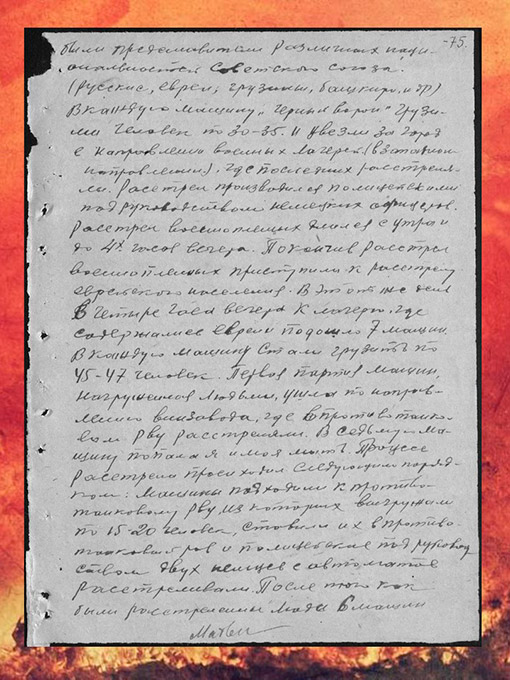 -75.
были представители различных наци-
ональностей Советского союза.
(русские, евреи, грузины, башкиры, и др)
В каждую машину „черный ворон" грузи-
ли человек по 30-35. и увезли за город
в направлении военных лагерей (в западном
направлении), где последних расстрели-
ли. Расстрел производился полицейскими
под руководством немецких офицеров.
Расстрел военнопленных длился с утра и
до 4х часов вечера. Покончив расстрел
военнопленных приступили к расстрелу
еврейского населения. В этот же день
в четыре часа вечера к лагерю, где
содержались евреи подошло 7 машин.
В каждую машину стали грузить по
45-47 человек. Первая партия машин,
нагруженная людьми, ушла по направ-
лению винзавода, где в противотанко-
вом рву расстреляли. В седьмую ма-
шину попала и моя мать. Процесс
расстрела происходил следующим поряд-
ком: машины подходили к противо-
танковому рву, из которых выгружали
по 15-20 человек, ставили их в противо-
танковый ров и полицейские под руковод
ством двух немцев с автоматов
расстреливали. После того как
были расстреляны люди 6 машин